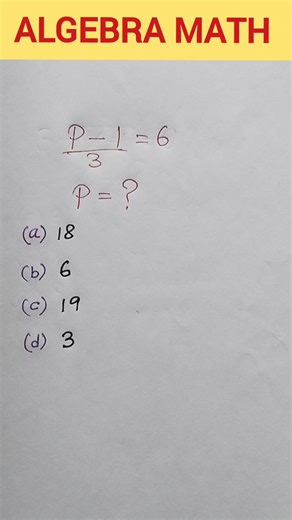 ALGEBRA MATH
P - 1 = 6
3
P = ?
(a) 18
(b) 6
(c) 19
(d) 3